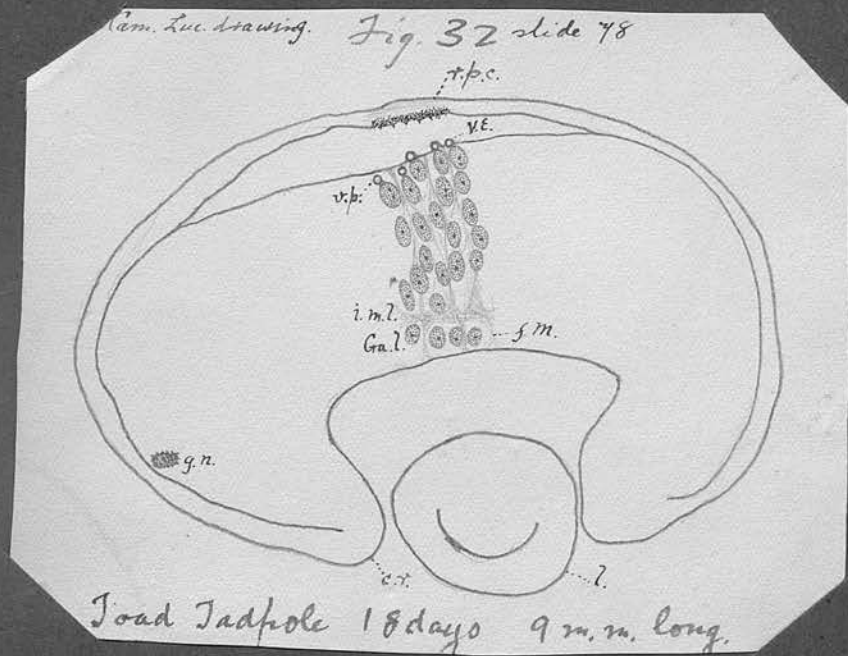 Cam. Luc. drawing. Fig. 32 slide 48
r.p.c.
v.E.
v.p.
i.m.l.
Ga.l.
f.m.
g.n.
c.r.
l.
Toad Tadpole 18 days 9 m.m. long.